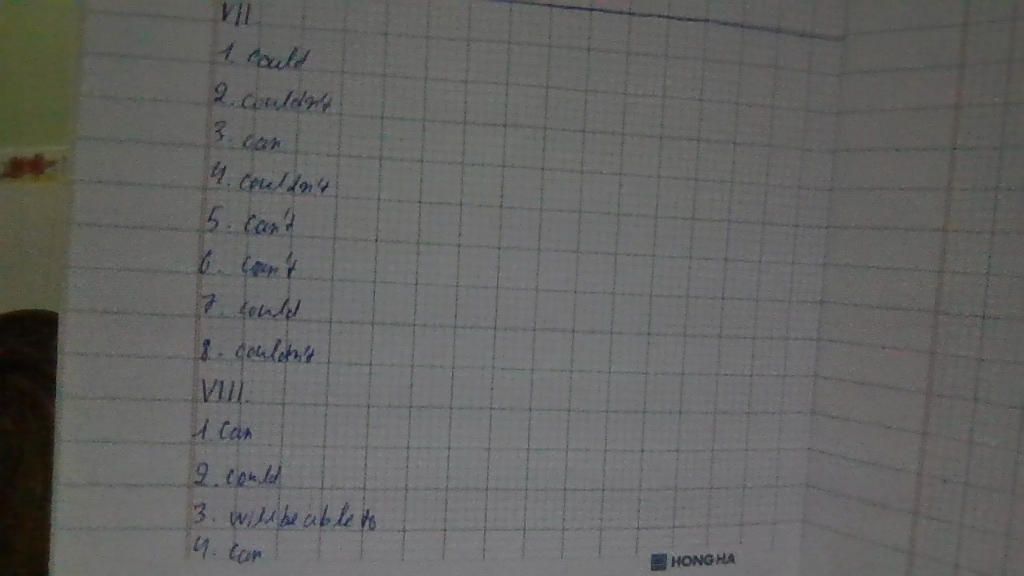 VII
1. could
2. couldn't
3. can
4. couldn't
5. can't
6. can't
7. could
8. couldn't
VIII.
1. Can
2. could
3. will be able to
4. can
HONG HA